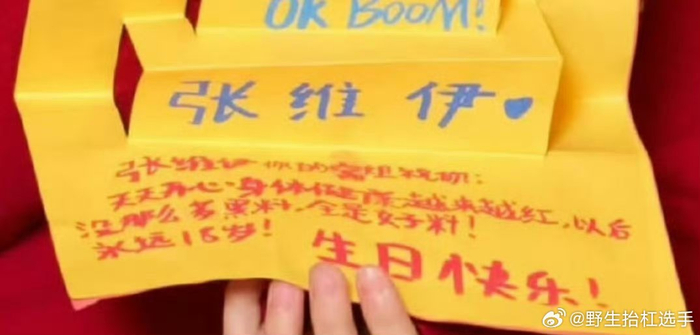 OK BOOM!
张维伊
张维伊你的富姐祝你:
天天开心,身体健康,越来越红,以后
没那么多黑料,全是好料!
永远18岁!
生日快乐!
@野生抬杠选手